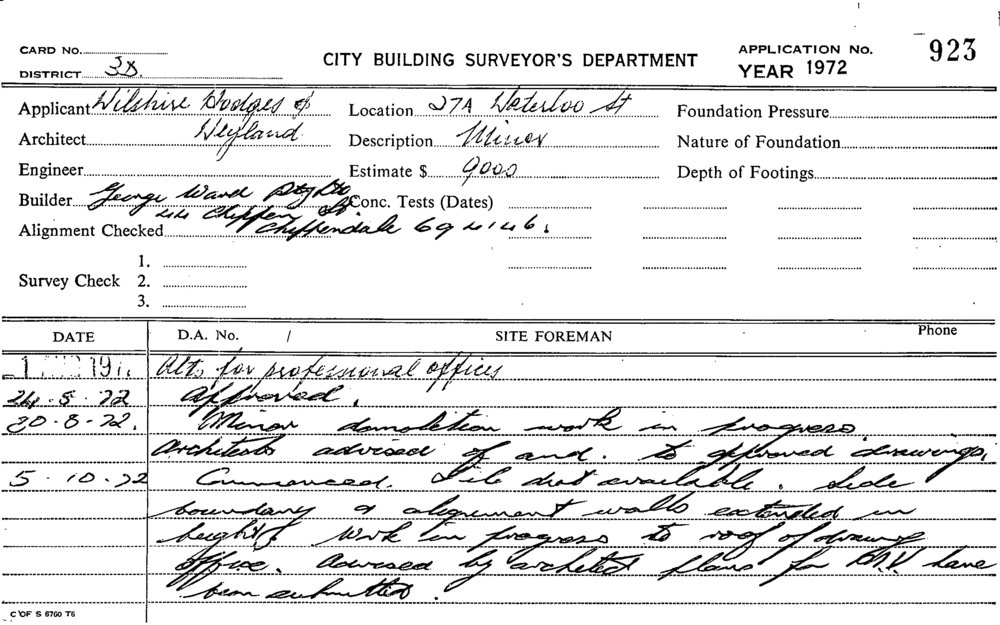 CARD No.
DISTRICT 3D.
CITY BUILDING SURVEYOR'S DEPARTMENT
APPLICATION No. 923
YEAR 1972
Applicant Wilshire Hodges &
Architect Weyland
Engineer
Builder George Ward Pty Ltd
44 Chippen St.
Alignment Checked Chippendale 69 4146.
Location 27A Waterloo St
Description Minor
Estimate $ 9000
Conc. Tests (Dates)
Foundation Pressure
Nature of Foundation
Depth of Footings
Survey Check
1.
2.
3.
DATE D.A. No. / SITE FOREMAN Phone
1 197 Alts for professional offices
24.5.72 Approved.
30.8.72. Minor demolition work in progress
architects advised of amd. to approved drawings.
5.10.72 Commenced. File not available. Side
boundary & alignment walls extended in
height & work in progress to roof of drawing
office. Advised by architect plans for have
been submitted.
C OF S 6760 T6